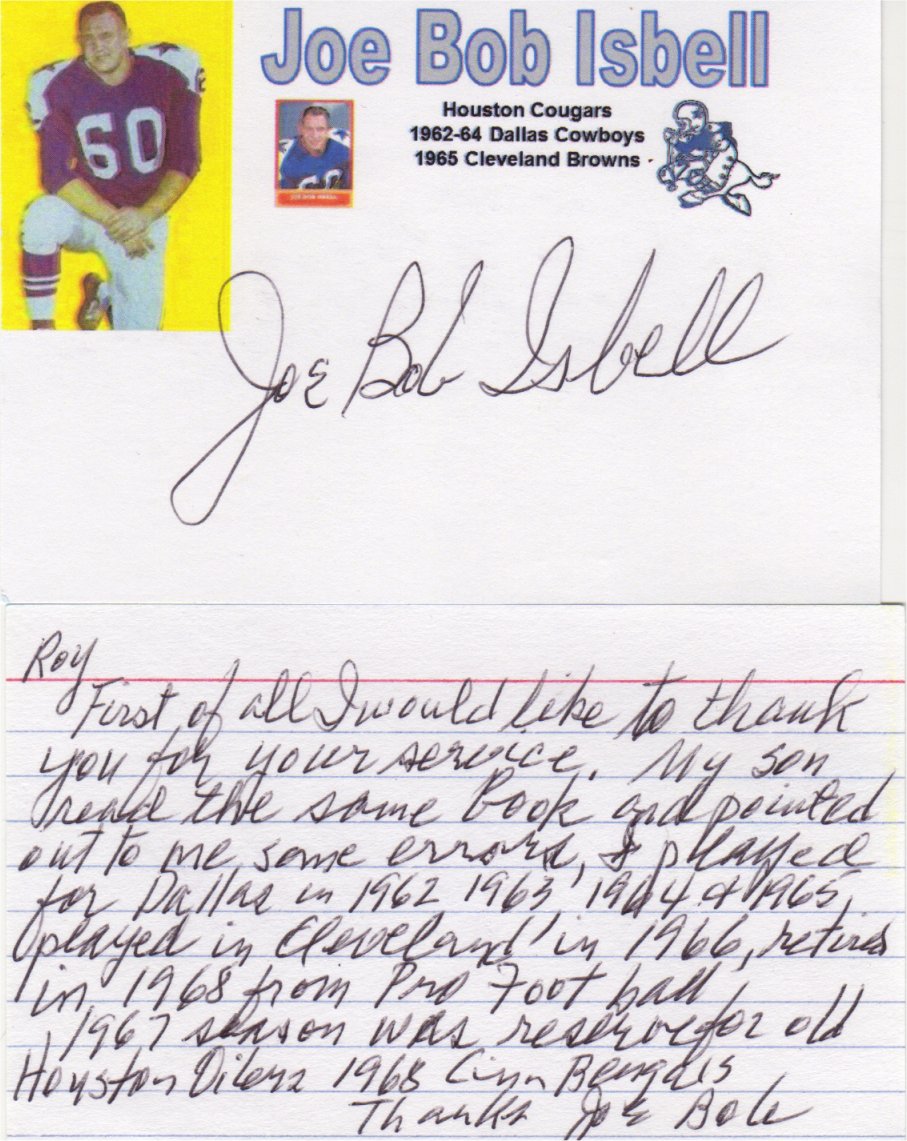 Joe Bob Isbell
Houston Cougars
1962-64 Dallas Cowboys
1965 Cleveland Browns
60
JOE BOB ISBELL
Joe Bob Isbell
Roy
First of all I would like to thank
you for your service. My son
read the same book and pointed
out to me some errors, I played
for Dallas in 1962 1963, 1964 & 1965,
played in Cleveland in 1966, retired
in 1968 from Pro Foot ball,
1967 season was reserve for old
Houston Oilers 1968 Cinn Bengals
Thanks Joe Bob